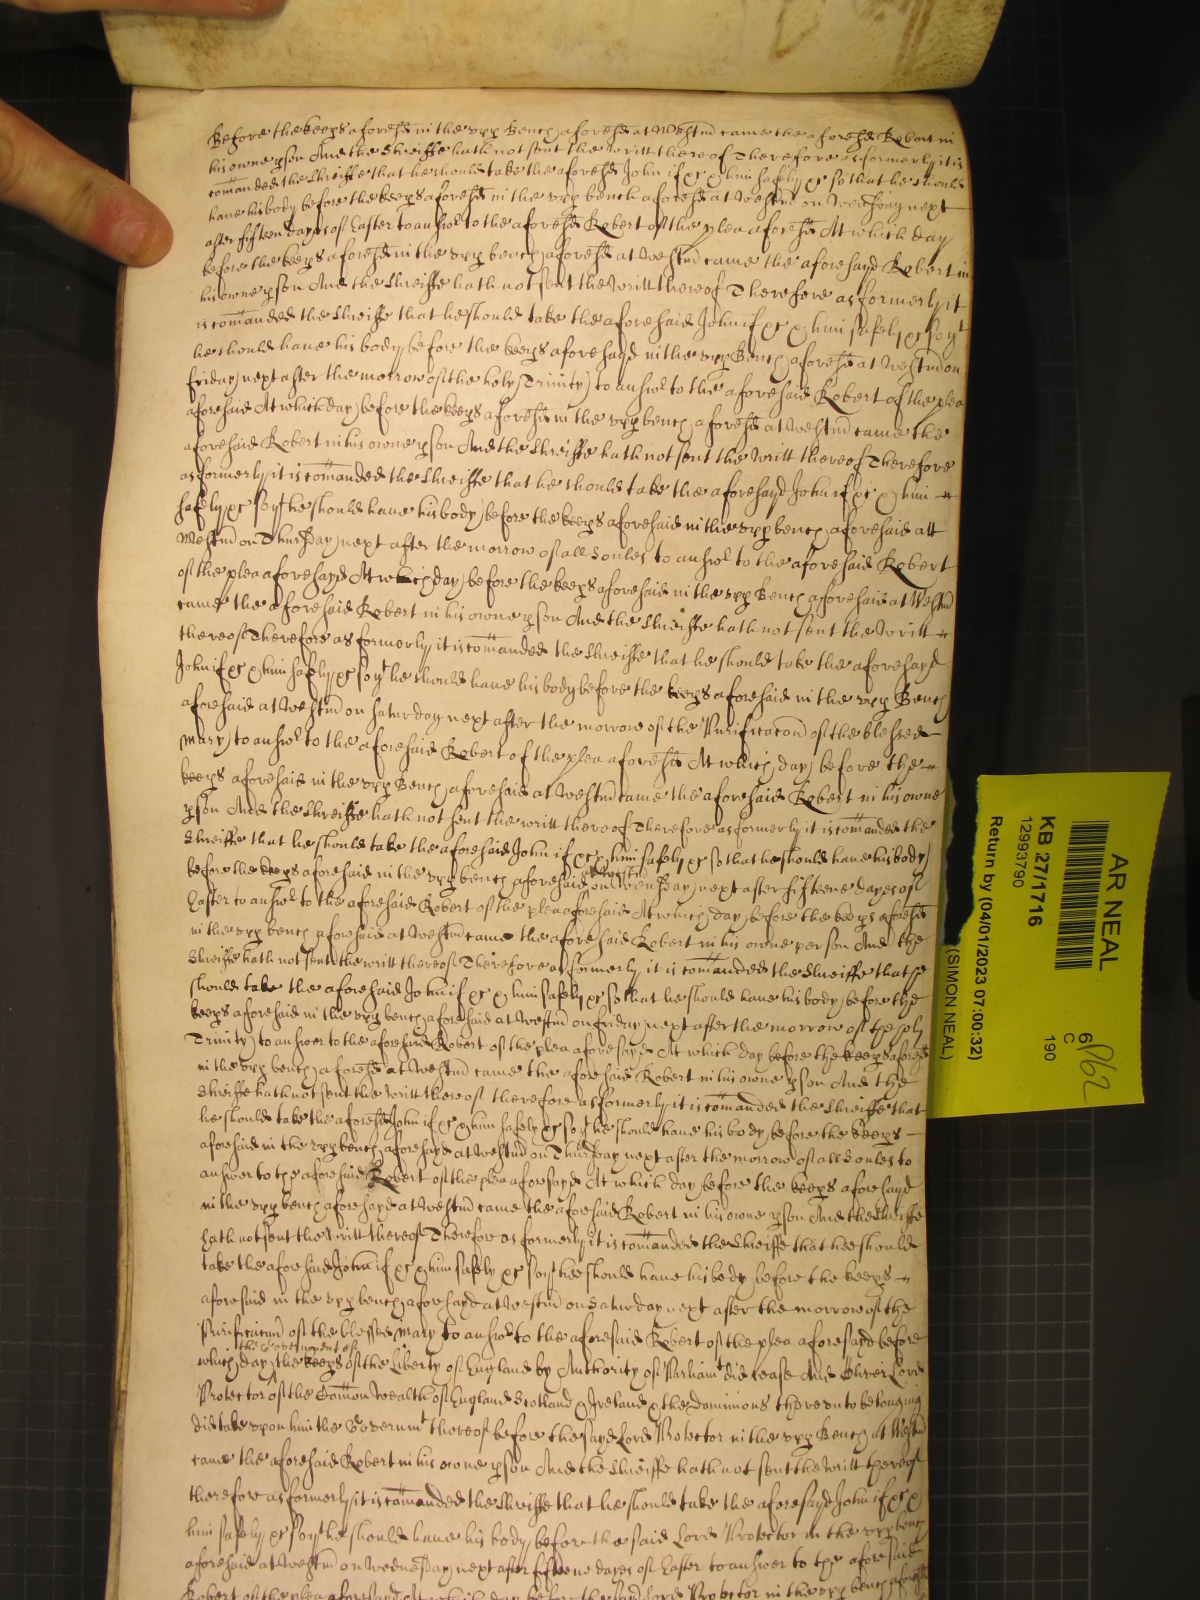 Before the keeps aforesd in the upp Bench aforesd at Westmr came the aforesd Robert in
his owne pson And the Shreiffe hath not sent the writt thereof Therefore as formerly it is
comanded the Shreiffe that he should take the aforesd John if &c & him safely &c so that he should
have his body before the keeps aforesd in the upp bench aforesd at Westmr on Wensday next
after fifteen dayes of Easter to answr to the aforesd Robert of the plea aforesd At which day
before the keeps aforesd in the upp bench aforesd at Westmr came the aforesayd Robert in
his owne pson And the Shreiffe hath not sent the writt thereof Therefore as formerly it
is comanded the Shreiffe that he should take the aforesaid John if &c & him safely &c so yt
he should have his body before the keeps aforesayd in the upp Bench aforesd at Westmr on
Friday next after the morrow of the holy Trinity to answr to the aforesaid Robert of the plea
aforesaid At which day before the keeps aforesd in the upp bench aforesd at Westmr came the
aforesaid Robert in his owne pson And the Shreiffe hath not sent the writt thereof Therefore
as formerly it is comanded the Shreiffe that he should take the aforesayd John if &c & him
safely &c so yt he should have his body before the keeps aforesaid in the upp bench aforesaid att
Westmr on Thursday next after the morrow of all Soules to answr to the aforesaid Robert
of the plea aforesayd At which day before the keeps aforesaid in the upp Bench aforesaid at Westmr
came the aforesaid Robert in his owne pson And the Shreiffe hath not sent the writt
thereof Therefore as formerly it is comanded the Shreiffe that he should take the aforesayd
John if &c & him safely &c so yt he should have his body before the keeps aforesaid in the upp Bench
aforesaid at Westmr on Saturday next after the morrow of the Purificacon of the blessed
Mary to answr to the aforesaid Robert of the plea aforesd At which day before the
keeps aforesaid in the upp Bench aforesaid at Westmr came the aforesaid Robert in his owne
pson And the Shreiffe hath not sent the writt thereof Therefore as formerly it is comanded the
Shreiffe that he should take the aforesaid John if &c & him safely &c so that he should have his body
before the keeps aforesaid in the upp bench aforesaid on Wensday next after fifteene dayes of
Easter to answr to the aforesaid Robert of the plea aforesaid At which day before the keeps aforesd
in the upp bench aforesaid at Westmr came the aforesaid Robert in his owne person And the
Shreiffe hath not sent the writt thereof Therefore as formerly it is comanded the Shreiffe that he
should take the aforesaid John if &c & him safely &c so that he should have his body before the
keeps aforesaid in the upp bench aforesaid at Westmr on Friday next after the morrow of the holy
Trinity to answer to the aforesaid Robert of the plea aforesayd At which day before the keeps aforesd
in the upp bench aforesd at Westmr came the aforesaid Robert in his owne pson And the
Shreiffe hath not sent the writt thereof therefore as formerly it is comanded the Shreiffe that
he should take the aforesd John if &c & him safely &c so yt he should have his body before the keeps
aforesaid in the upp bench aforesayd at Westmr on Thursday next after the morrow of all Soules to
answer to the aforesaid Robert of the plea aforesayd At which day before the keeps aforesayd
in the upp bench aforesayd at Westmr came the aforesaid Robert in his owne pson And the Shreiffe
hath not sent the writt thereof Therefore as formerly it is comanded the Shreiffe that hee should
take the aforesaid John if &c & him safely &c so yt hee should have his body before the keeps
aforesaid in the upp bench aforesayd at Westmr on Saturday next after the morrow of the
Purificacon of the blessed Mary to answr to the aforesaid Robert of the plea aforesayd before
which day the Government of the keeps of the Liberty of England by Authority of Parliamt did cease And Oliver Lord
Protector of the Comon Wealth of England Scotland & Ireland & the dominions thereunto belonging
did take upon him the Governmt thereof before the sayd Lord Protector in the upp Bench at Westmr
came the aforesaid Robert in his owne pson And the Shreiffe hath not sent the writt thereof
therefore as formerly it is comanded the Shreiffe that he should take the aforesayd John if &c &
him safely &c so yt he should have his body before the said Lord Protector in the upp bench
aforesaid at Westmr on Wednesday next after fifteene dayes of Easter to answer to the aforesaid
Robert of the plea aforesayd At which day before the said Lord Protector in the upp bench aforesd
AR NEAL
KB 27/1716
12993790
Return by (04/01/2023 07:00:32)
(SIMON NEAL)
6
C
190